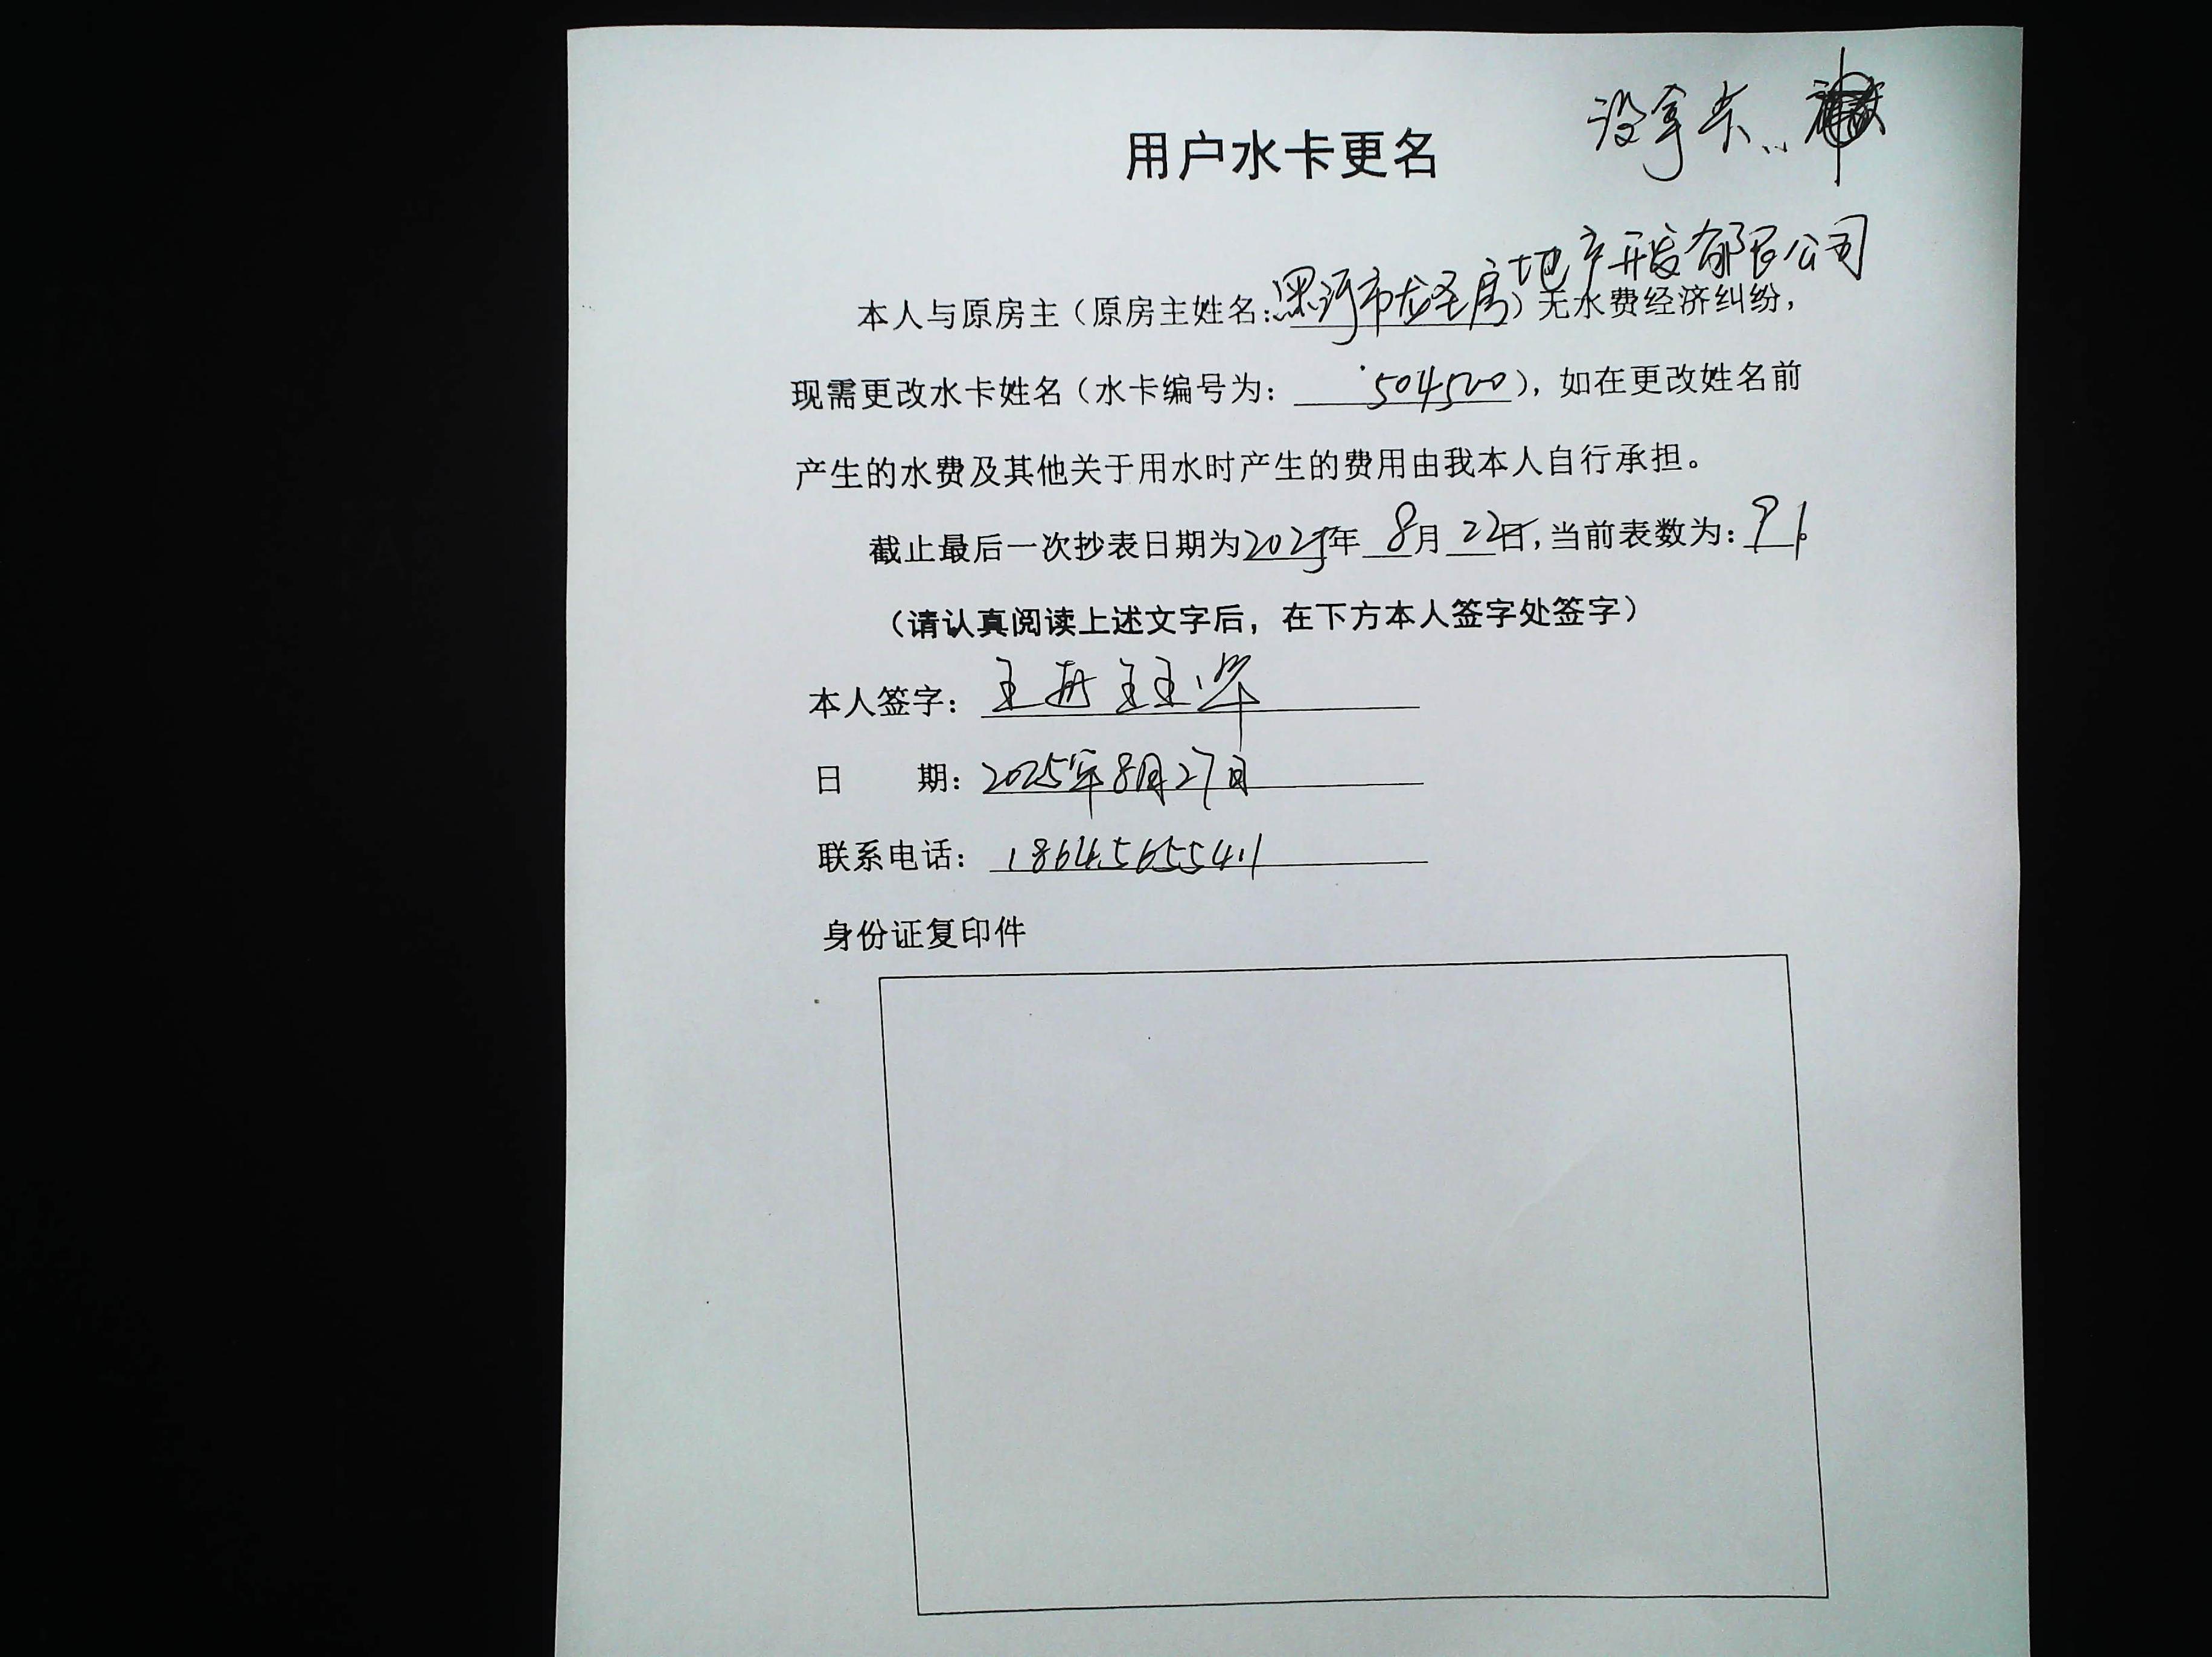 没拿卡
用户水卡更名
本人与原房主（原房主姓名：黑河市龙圣房地产开发有限公司）无水费经济纠纷，
现需更改水卡姓名（水卡编号为：504500），如在更改姓名前
产生的水费及其他关于用水时产生的费用由我本人自行承担。
截止最后一次抄表日期为2025年8月22日，当前表数为：91。
（请认真阅读上述文字后，在下方本人签字处签字）
本人签字：王
日 期：2025年8月27日
联系电话：18645655411
身份证复印件